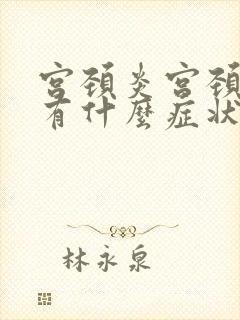 宫颈炎宫颈
有什麼症状
林永泉